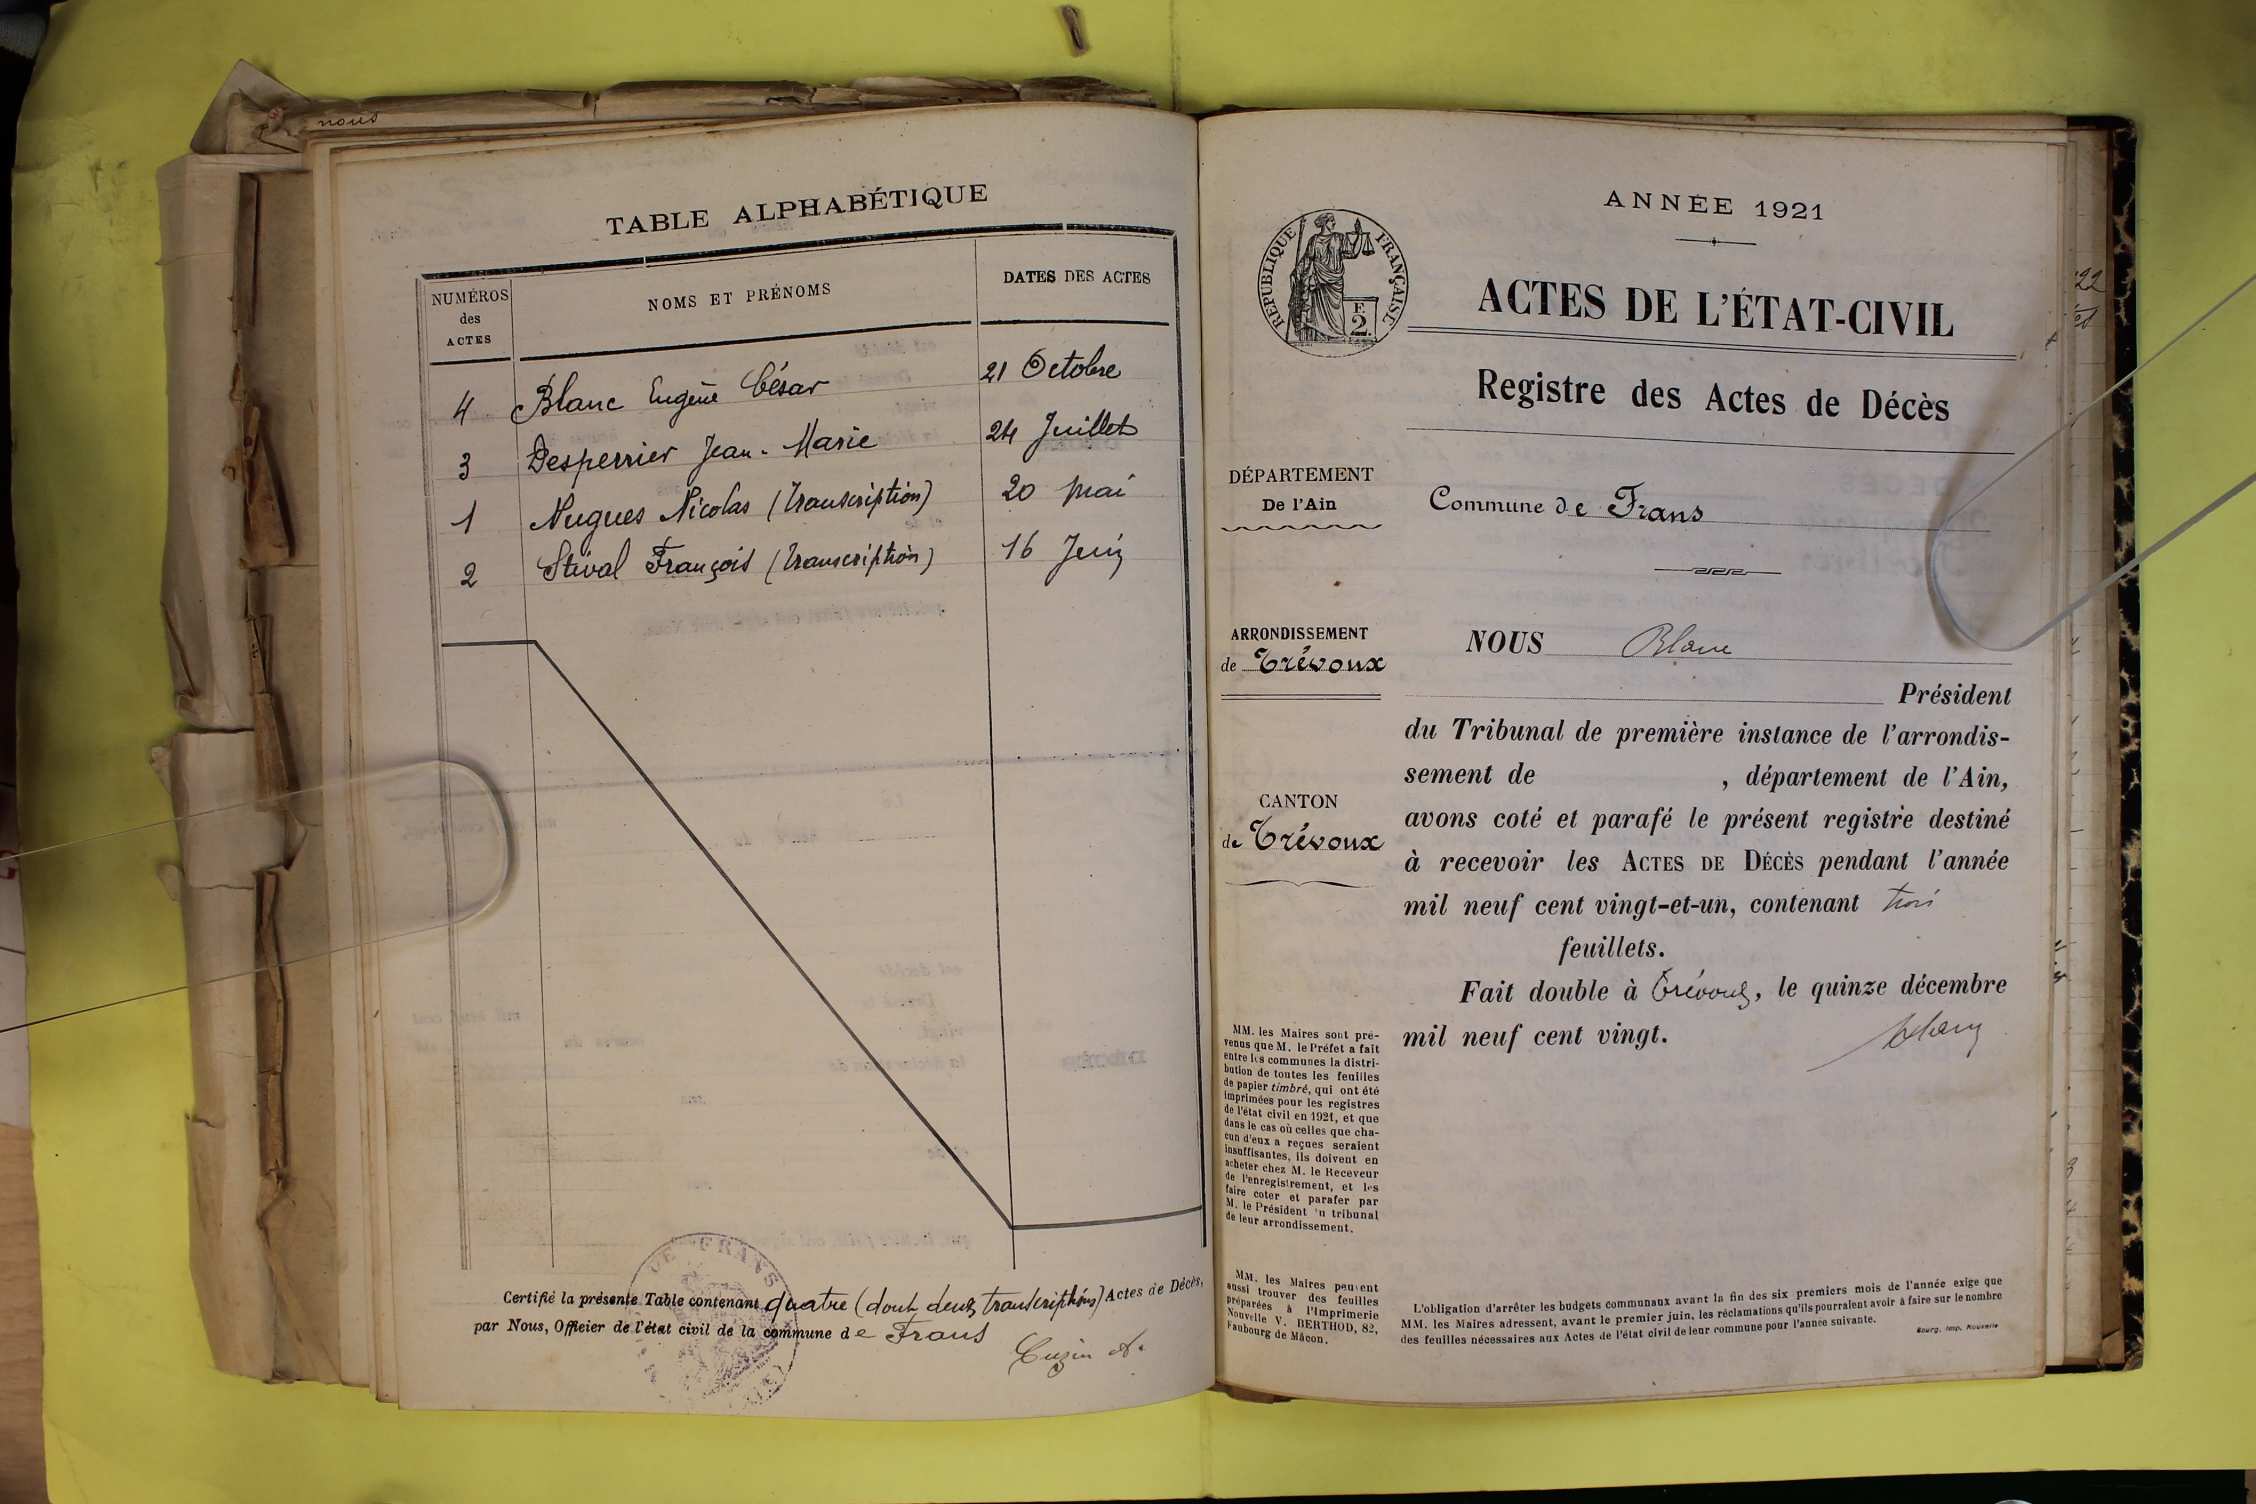 nous
TABLE ALPHABÉTIQUE
NUMÉROS
des
ACTES
NOMS ET PRÉNOMS
DATES DES ACTES
4 Blanc Eugène César 21 Octobre
3 Desperrier Jean-Marie 24 Juillet
1 Nugues Nicolas (Transcription) 20 mai
2 Stival François (Transcription) 16 Juin
DE FRANS
Certifié la présente Table contenant quatre (dont deux transcriptions) Actes de Décès,
par Nous, Officier de l'état civil de la commune de Frans
Cuzin A.
ANNÉE 1921
RÉPUBLIQUE FRANÇAISE
F.
2.
ACTES DE L'ÉTAT-CIVIL
Registre des Actes de Décès
DÉPARTEMENT
De l'Ain
Commune de Frans
ARRONDISSEMENT
de Trévoux
CANTON
de Trévoux
NOUS Blanc
Président
du Tribunal de première instance de l'arrondis-
sement de , département de l'Ain,
avons coté et parafé le présent registre destiné
à recevoir les ACTES DE DÉCÈS pendant l'année
mil neuf cent vingt-et-un, contenant trois
feuillets.
Fait double à Trévoux, le quinze décembre
mil neuf cent vingt.
MM. les Maires sont pré-
venus que M. le Préfet a fait
entre les communes la distri-
bution de toutes les feuilles
de papier timbré, qui ont été
imprimées pour les registres
de l'état civil en 1921, et que
dans le cas où celles que cha-
cun d'eux a reçues seraient
insuffisantes, ils doivent en
acheter chez M. le Receveur
de l'enregistrement, et les
faire coter et parafer par
M. le Président 'u tribunal
de leur arrondissement.
MM. les Maires peuvent
aussi trouver des feuilles
préparées à l'Imprimerie
Nouvelle V. BERTHOD, 82,
Faubourg de Mâcon.
L'obligation d'arrêter les budgets communaux avant la fin des six premiers mois de l'année exige que
MM. les Maires adressent, avant le premier juin, les réclamations qu'ils pourraient avoir à faire sur le nombre
des feuilles nécessaires aux Actes de l'état civil de leur commune pour l'année suivante.
Bourg, Imp. Nouvelle
22